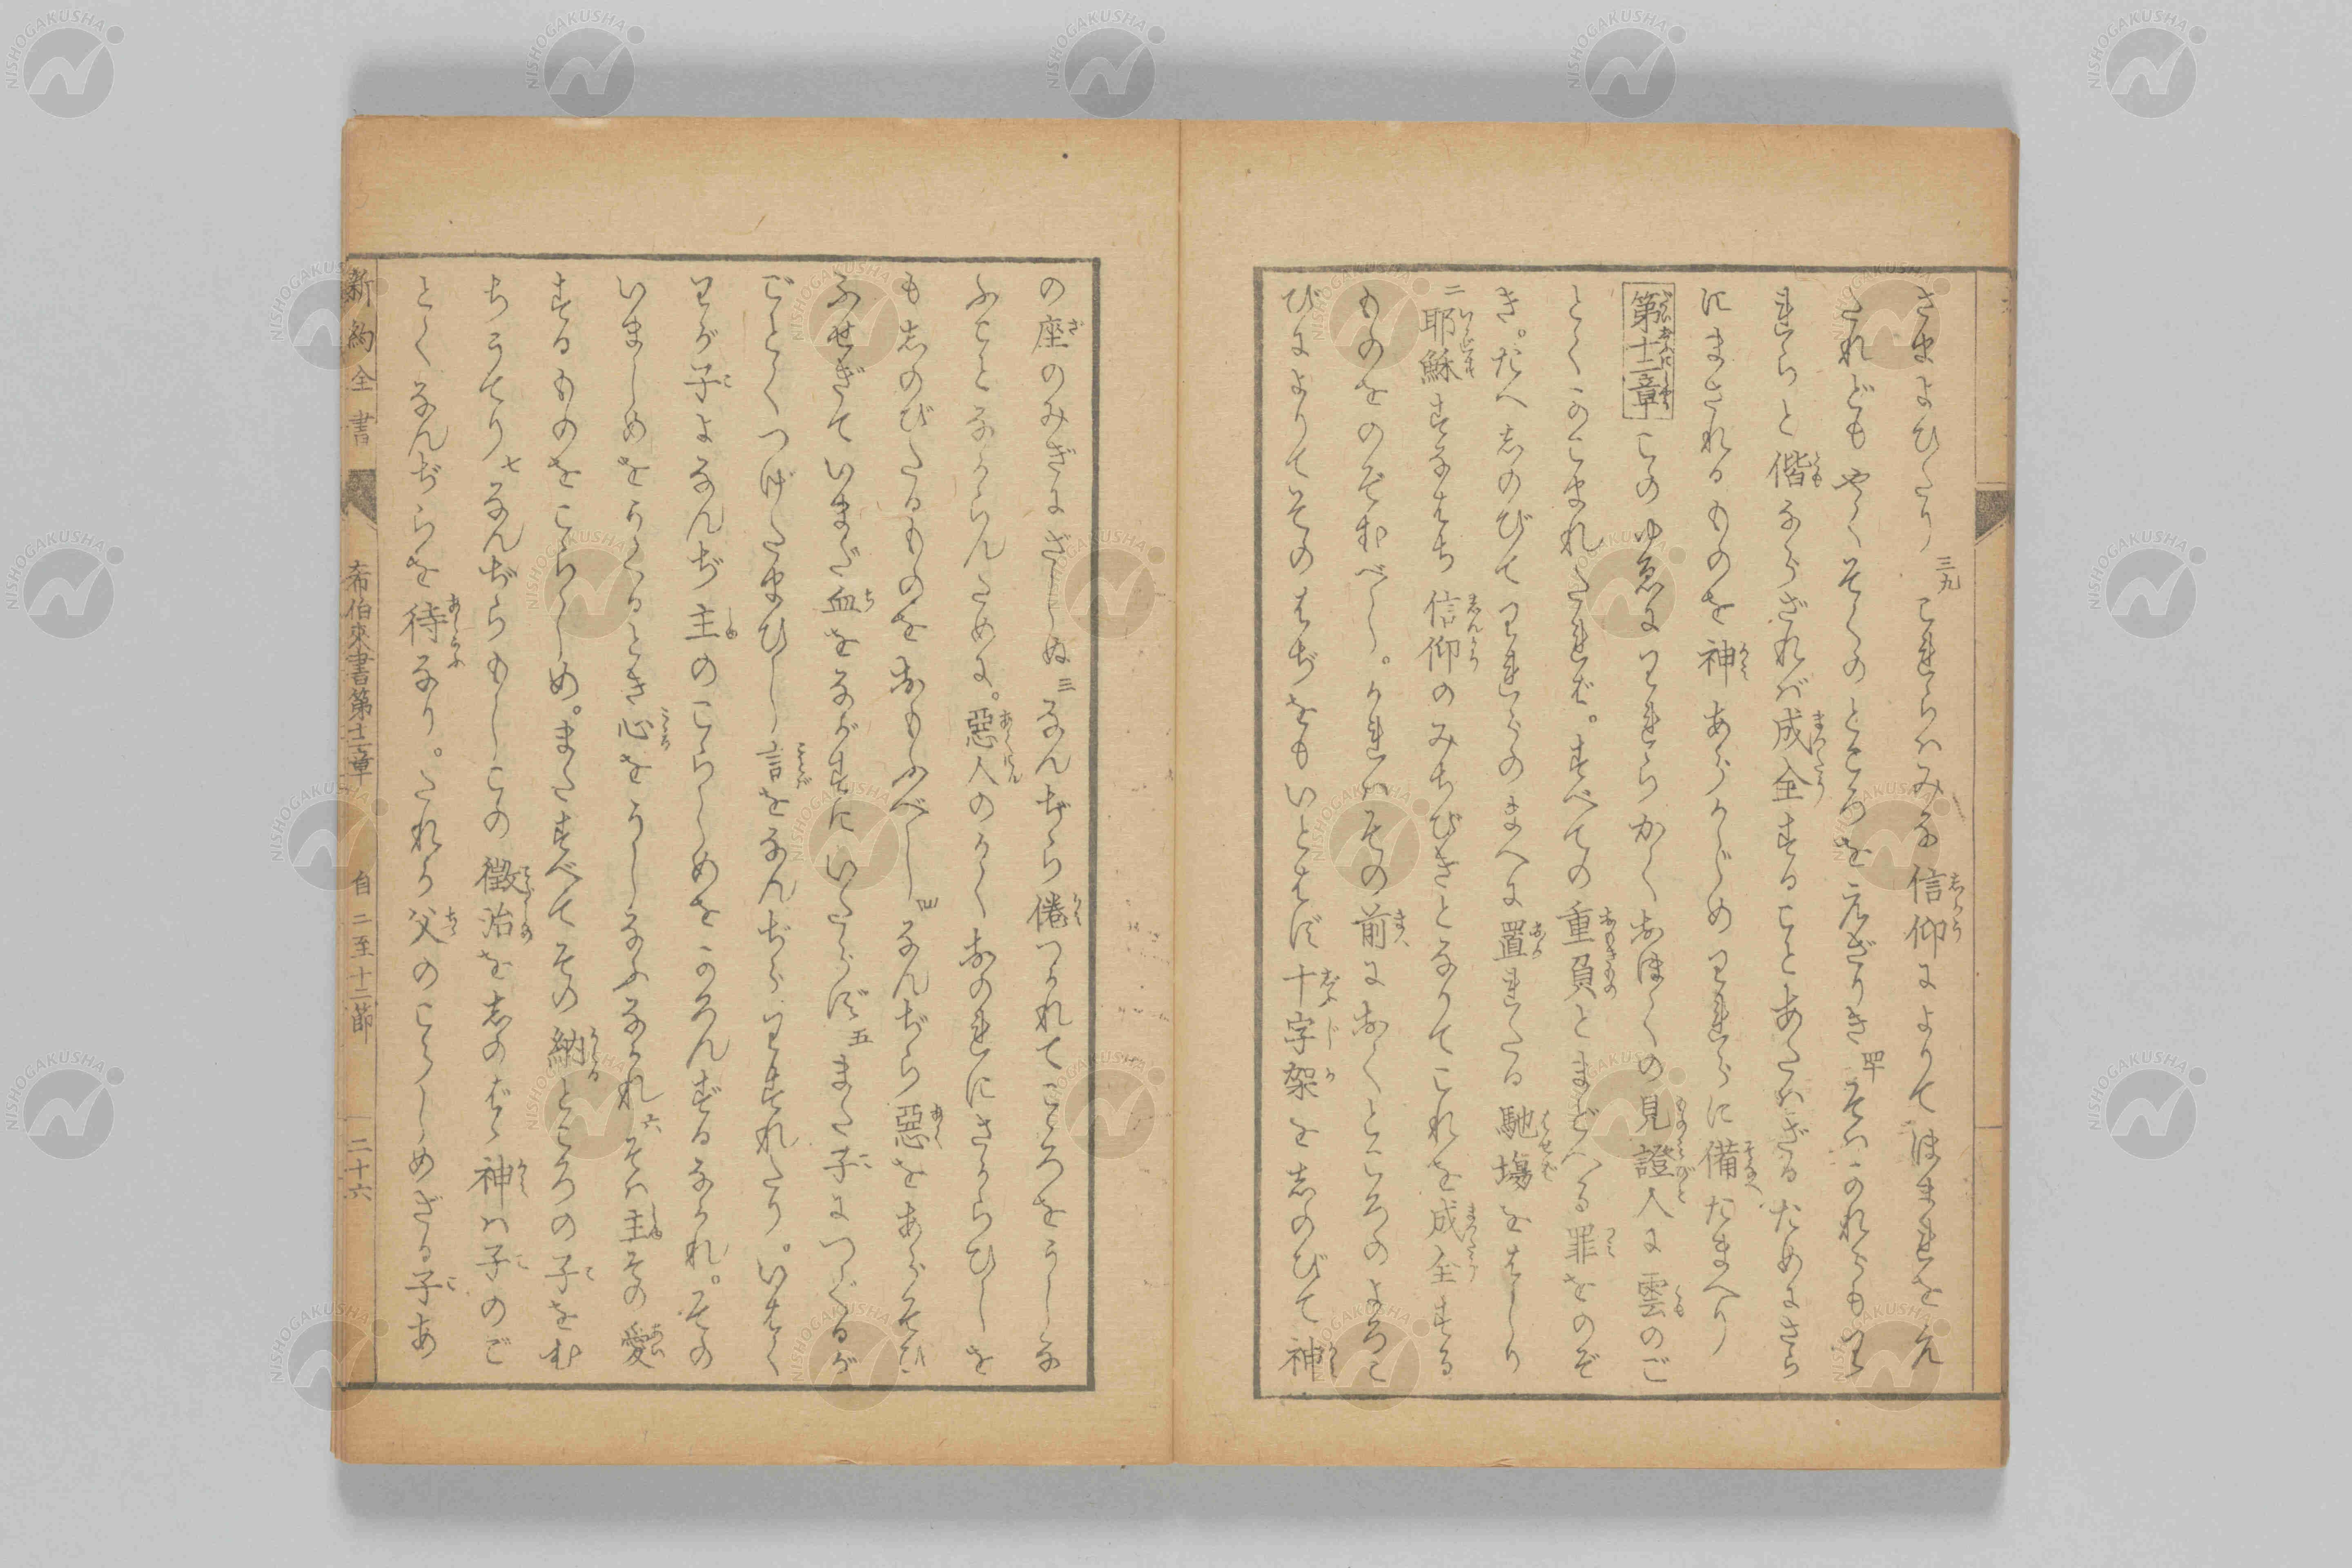 さまよひたり 三九 これらハみな信仰によりてほまれをえ
されどもやくそくのところをえざりき 四十 そハかれらもわ
れらと偕ならざれバ成全することあたハざるためにさら
にまされるものを神あらかじめわれらに備たまへり
第十二章 このゆゑにわれらかくおほくの見證人に雲のご
とくかこまれたれバ。すべての重負とまどへる罪をのぞ
き。たへしのびてわれらのまへに置れたる馳場をはしり
二 耶穌すなはち信仰のみちびきとなりてこれを成全する
ものをのぞむべし。かれハその前におくところのよろこ
びによりてそのはぢをもいとはず十字架をしのびて神
の座のみぎにざしぬ 三 なんぢら倦つかれてこころをうしな
ふことなからんために。惡人のかくおのれにさからひしを
もしのびたるものをおもふべし 四 なんぢら惡をあらそひ
ふせぎていまだ血をながすにいたらず 五 また子につぐるが
ごとくつげたまひし言をなんぢらわすれたり。いはく
わが子よなんぢ主のこらしめをかろんずるなかれ。その
いましめをうくるとき心をうしなふなかれ 六 そハ主その愛
するものをこらしめ。またすべてその納ところの子をむ
ちうてり 七 なんぢらもしこの徴治をしのばゞ神ハ子のご
とくなんぢらを待なり。たれか父のこらしめざる子あ
新約全書 希伯來書第十二章 自二至十二節 二十六